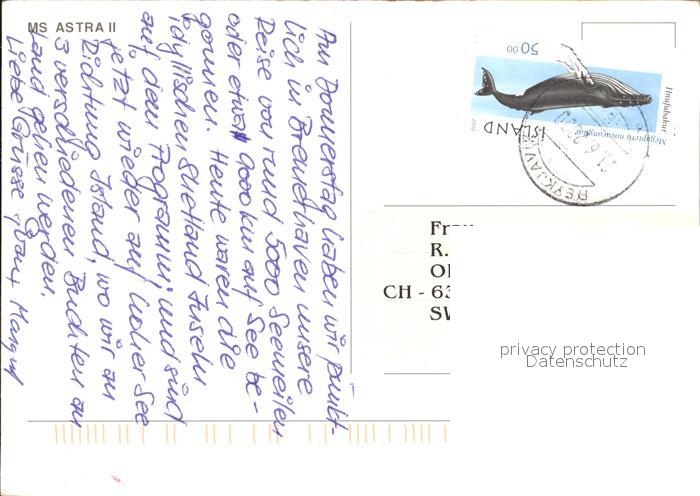 MS ASTRA II
Am Donnerstag haben wir pünkt-
lich in Bremerhaven unsere
Reise von rund 5000 Seemeilen
oder etwa 9000 km auf See be-
gonnen. Heute waren die
idyllischen Shetland Inseln
auf dem Programm, und sind
jetzt wieder auf hoher See
Richtung Island, wo wir an
3 verschiedenen Buchten an
Land gehen werden.
Liebe Grüsse
50 00
Hnúfubakur
Megaptera novaeangliae
ÍSLAND
REYKJAVÍK
Fr
R.
Ol
CH - 63
SW
privacy protection
Datenschutz